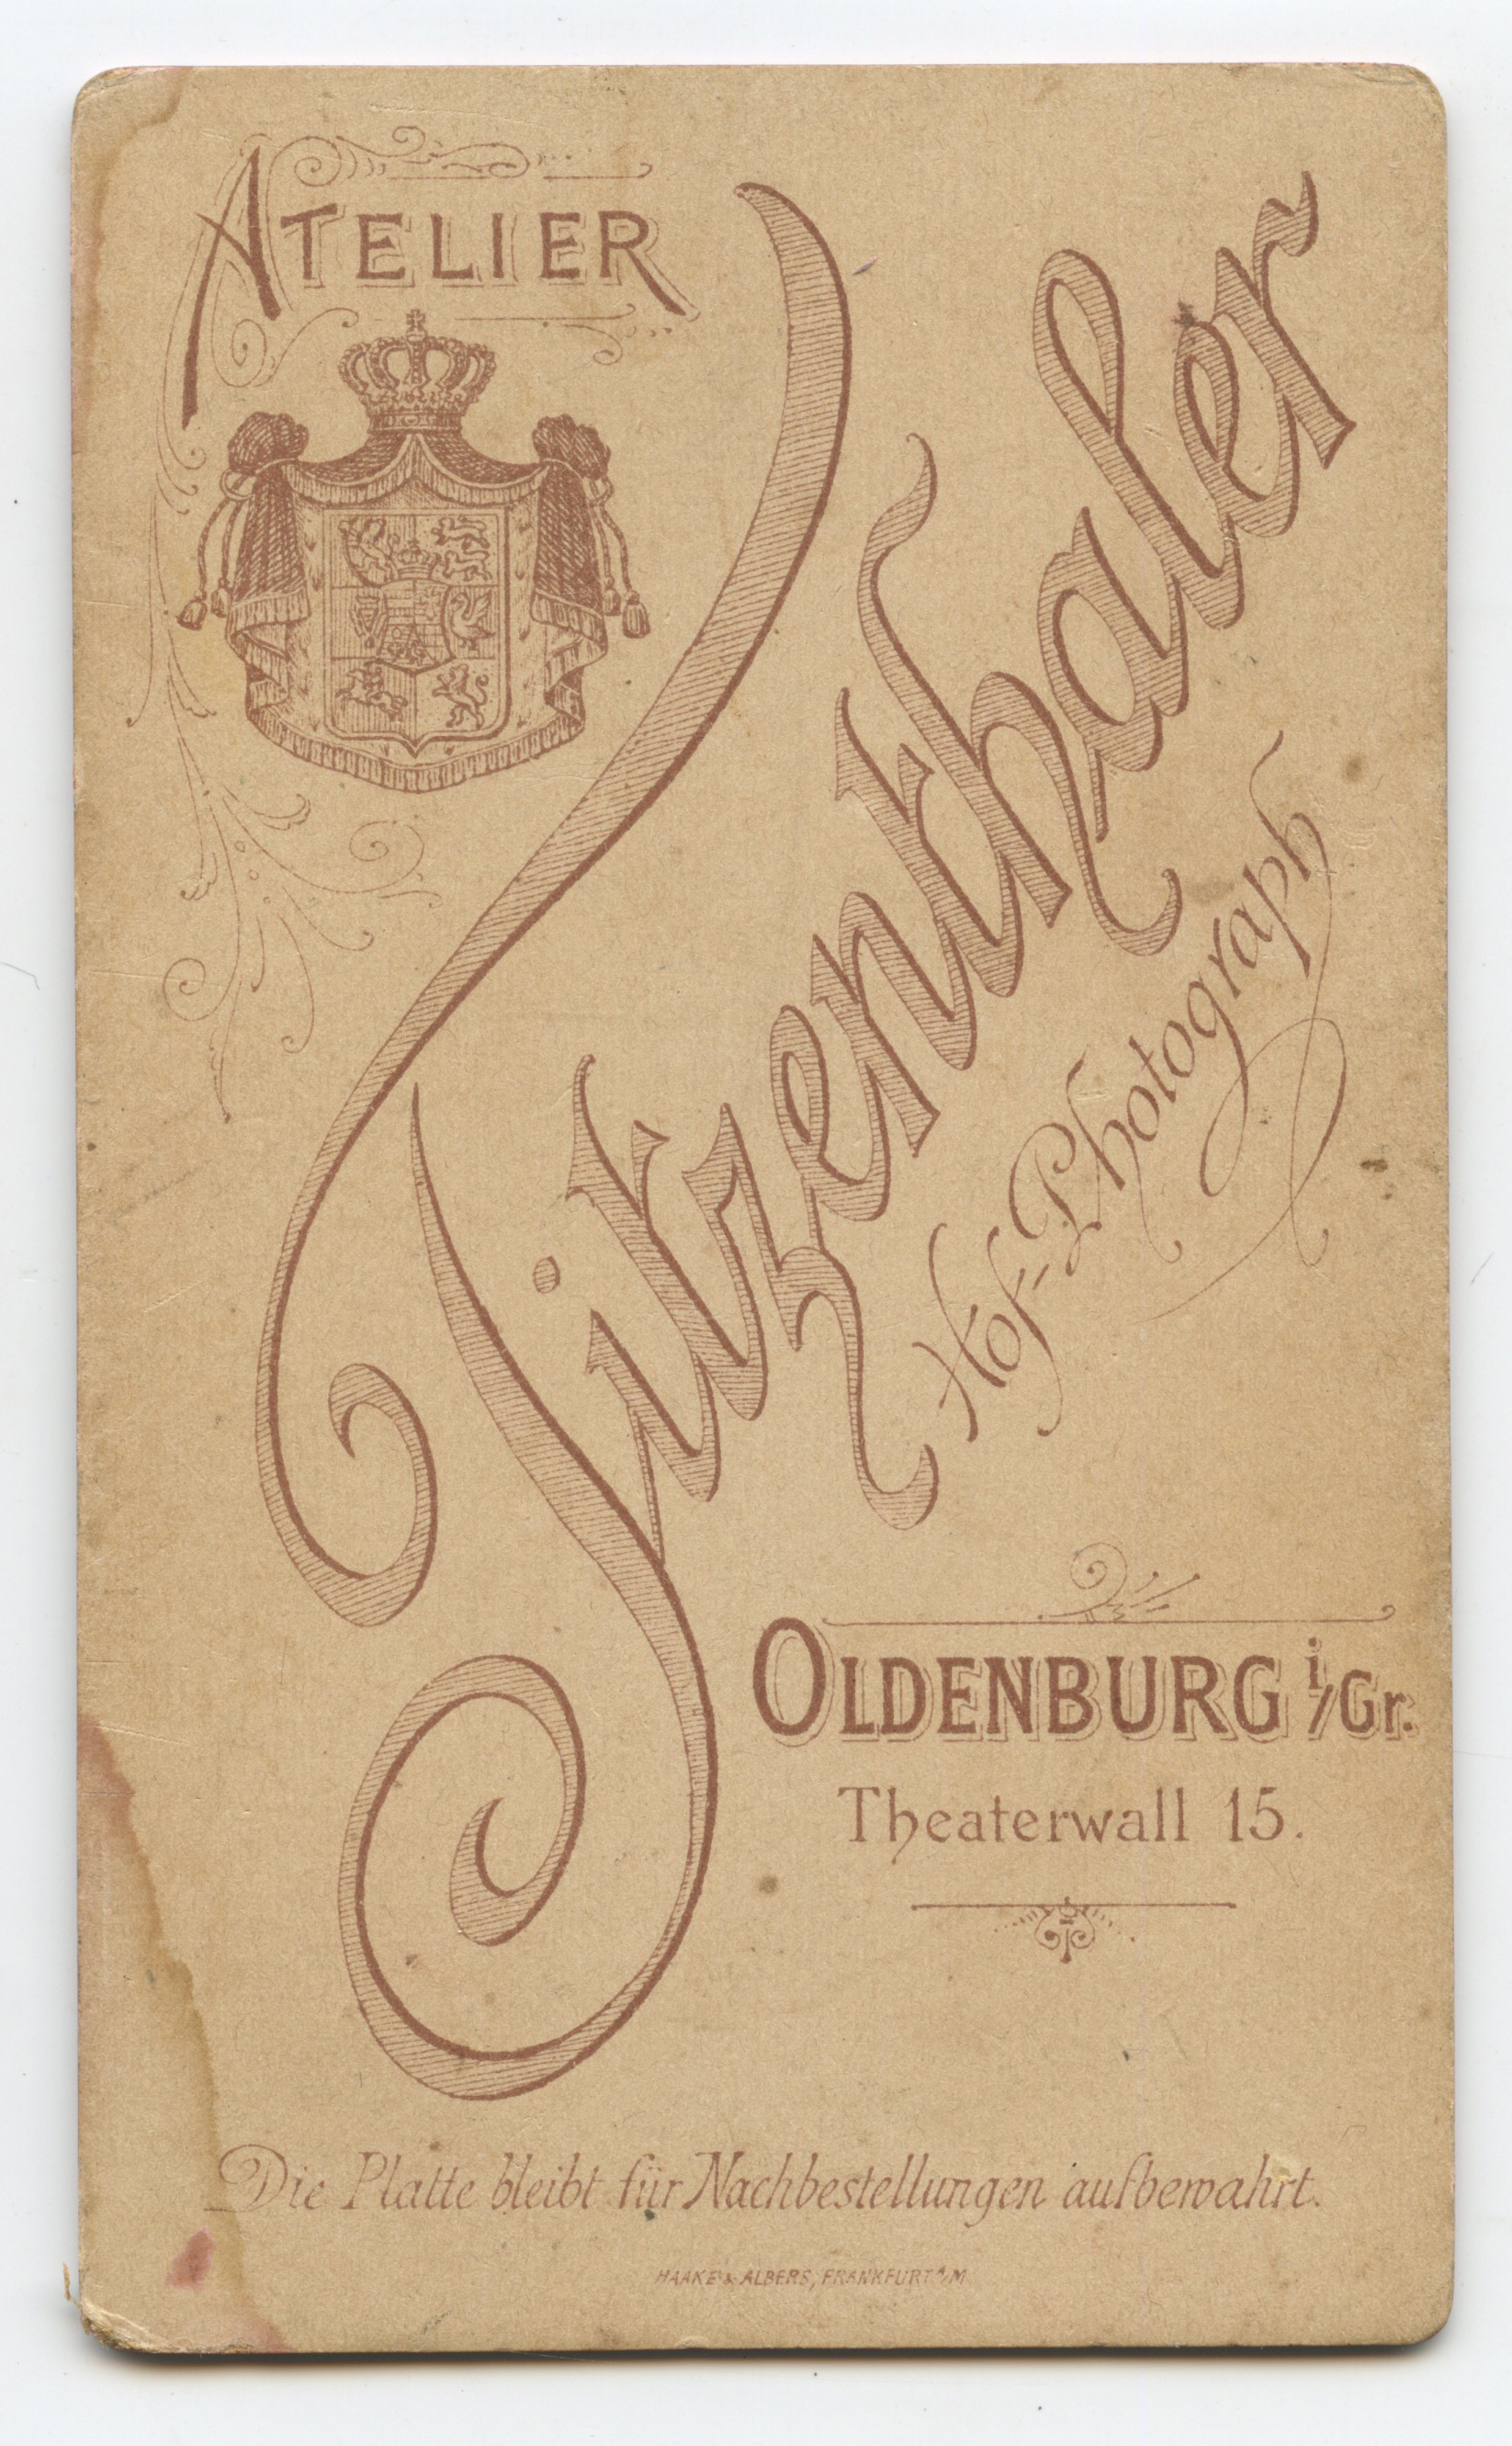 ATELIER
Titzenthaler
Hof-Photograph
OLDENBURG i/Gr.
Theaterwall 15.
Die Platte bleibt für Nachbestellungen aufbewahrt.
HAAKE & ALBERS, FRANKFURT A/M